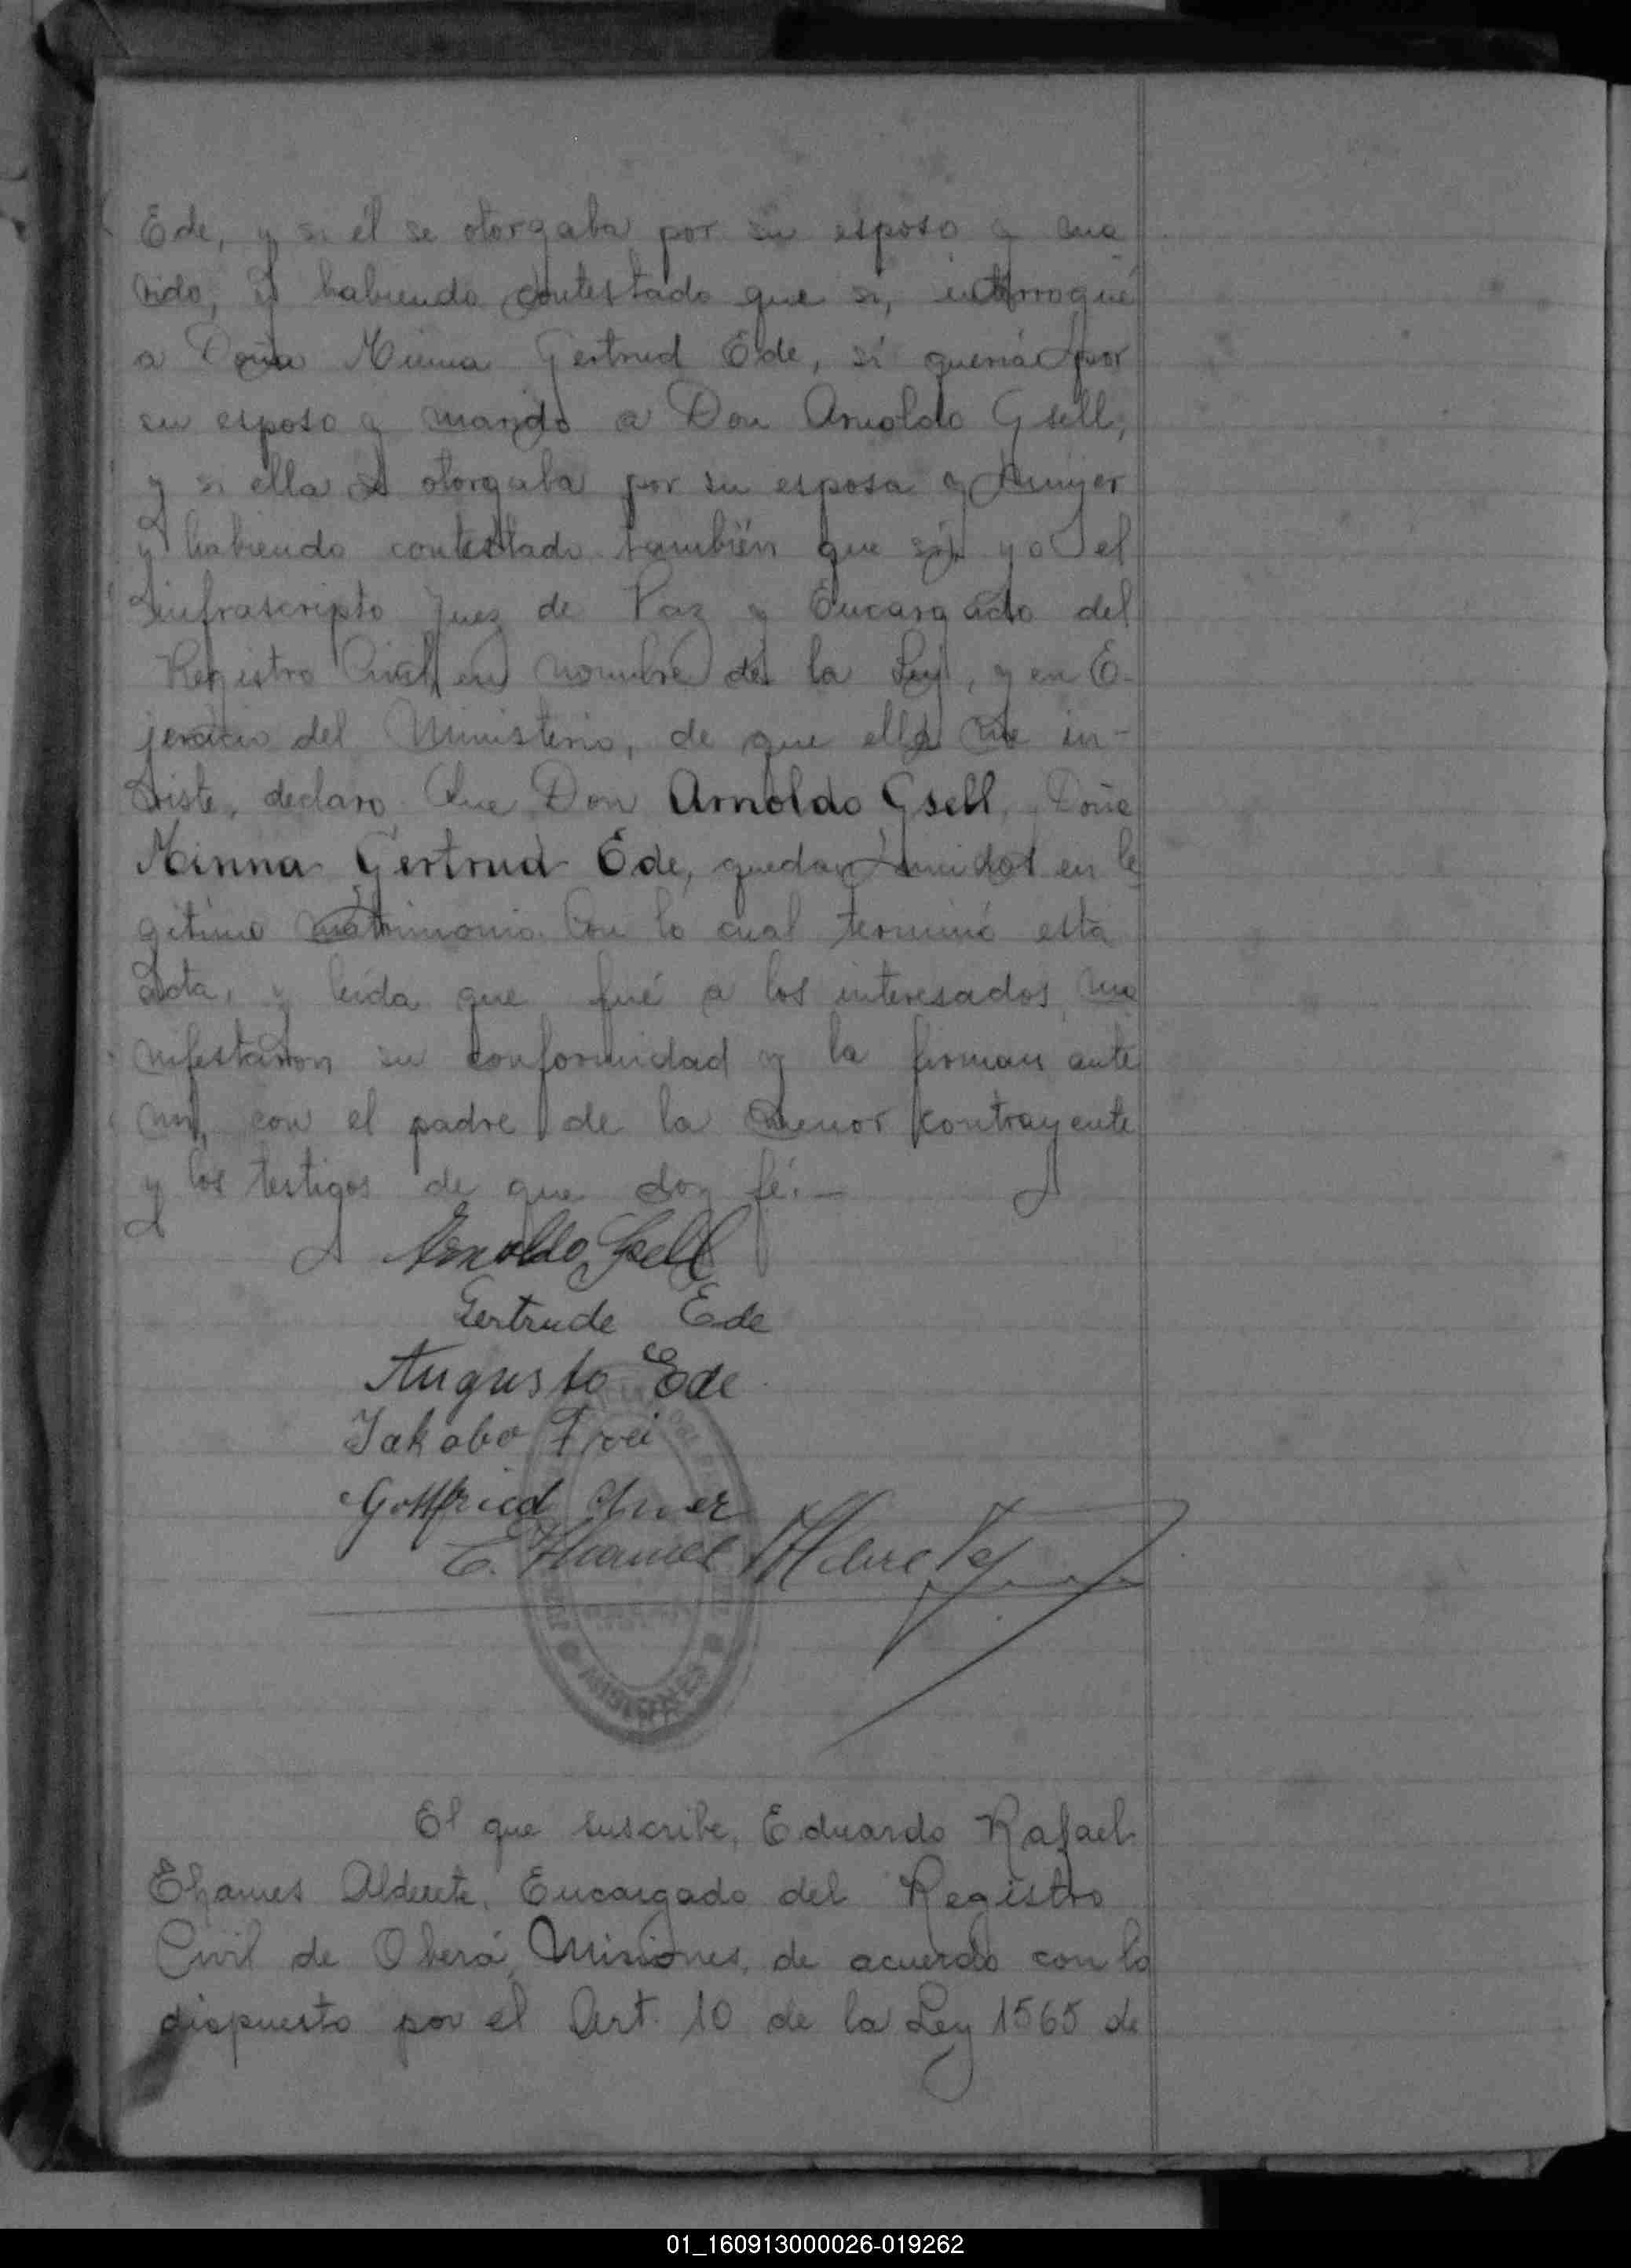 Ede, y si él se otorgaba por su esposo y ma
rido, y habiendo contestado que si, interrogué
a Doña Minna Gertrud Ede, sí quería por
su esposo y marido a Don Arnoldo Gsell,
y si ella se otorgaba por su esposa y mujer
y habiendo contestado también que sí, yo el
infrascripto Juez de Paz y Encargado del
Registro Civil, en nombre de la Ley, y en E-
jercicio del Ministerio, de que ella me in-
viste, declaro. Que Don Arnoldo Gsell, y Doña
Minna Gertrud Ede, quedan unidos en le
gítimo matrimonio. Con lo cual terminó esta
acta, y leída que fué a los interesados, ma
nifestaron su conformidad y la firman ante
mi, con el padre de la menor contrayente
y los testigos de que doy fé.—
Arnoldo Gsell
Gertrude Ede
Augusto Ede
Jakobo Frei
Gottfried
E. Ehames Alderete
MISIONES
El que suscribe, Eduardo Rafael
Ehames Alderete, Encargado del Registro
Civil de Oberá, Misiones, de acuerdo con lo
dispuesto por el Art. 10 de la Ley 1565 de
01_160913000026-019262